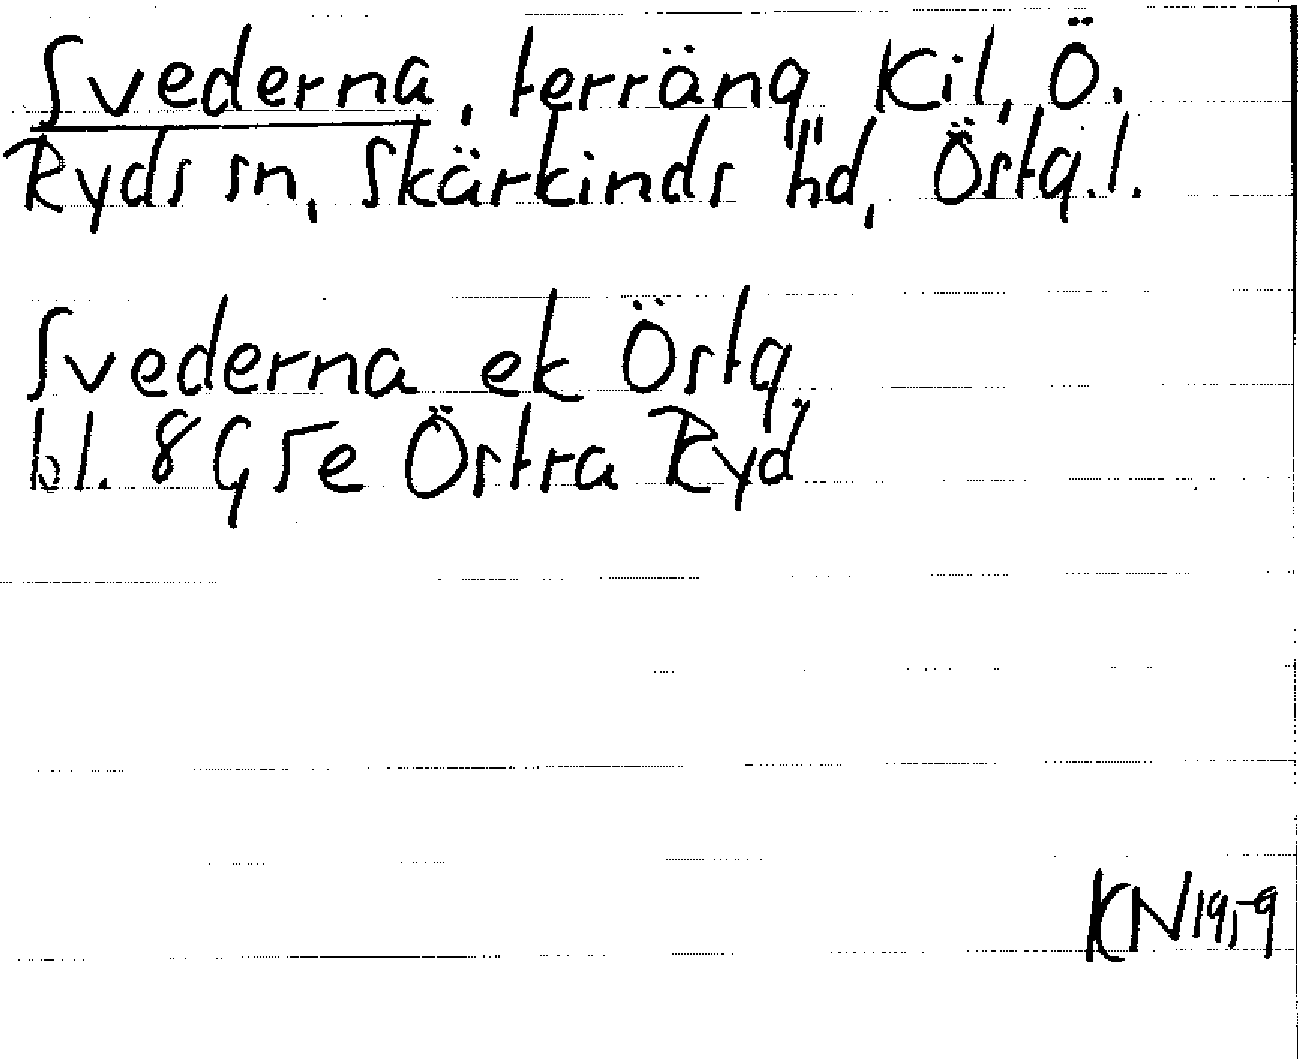 Svederna, terräng Kil, Ö.
Ryds sn, Skärkinds hd, Östg.l.
Svederna ek Östg
bl. 8G5e Östra Ryd
KN 1959